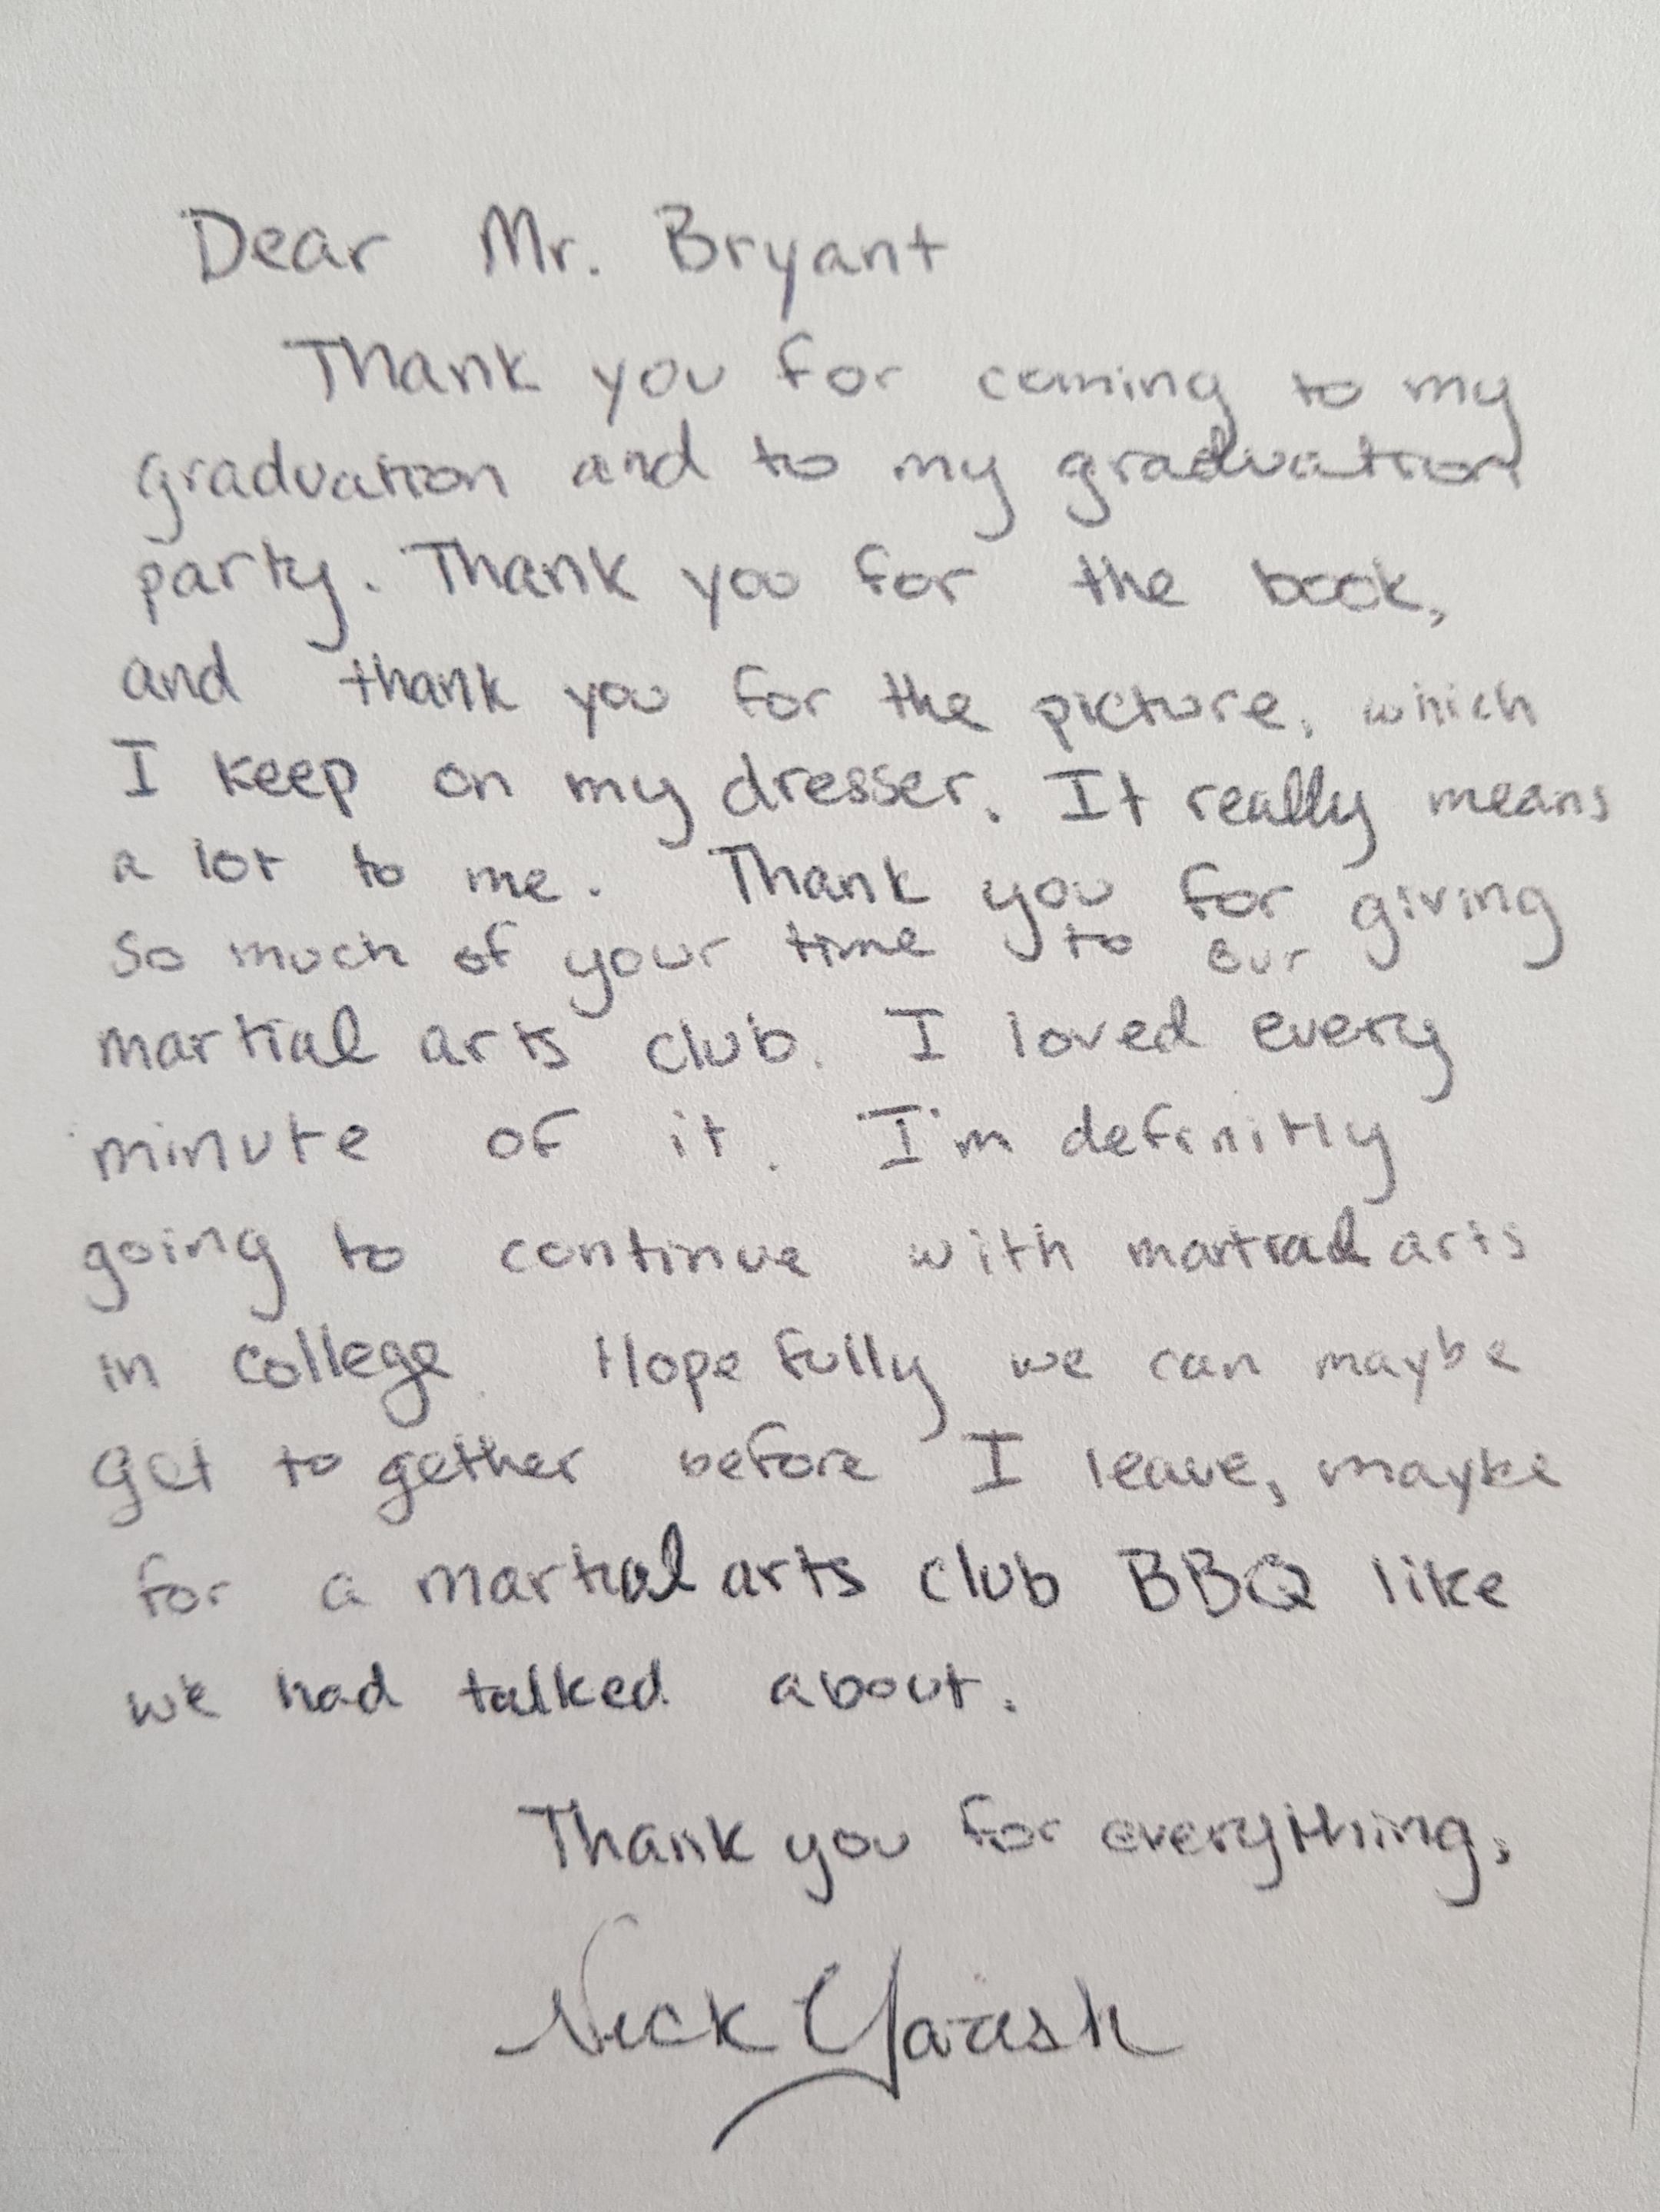 Dear Mr. Bryant
Thank you for coming to my
graduation and to my graduation
party. Thank you for the book,
and thank you for the picture, which
I keep on my dresser. It really means
a lot to me. Thank you for giving
so much of your time to our
martial arts club. I loved every
minute of it. I'm definitly
going to continue with martial arts
in college. Hopefully we can maybe
get together before I leave, maybe
for a martial arts club BBQ like
we had talked about.
Thank you for everything,
Nick